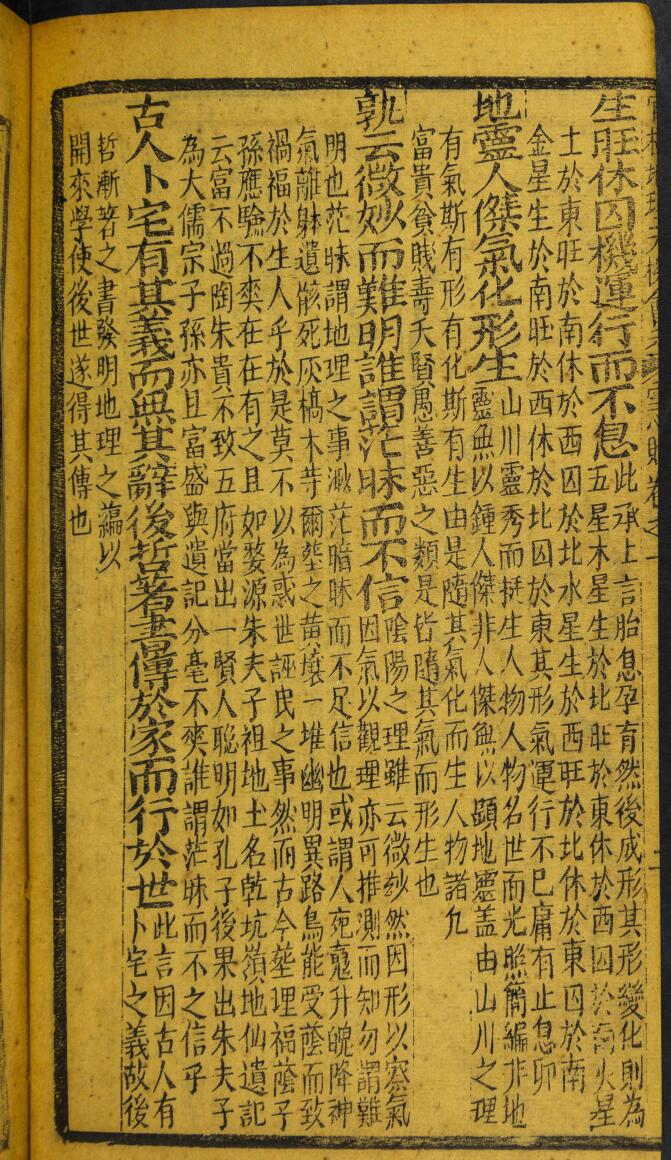 卷之一
生旺休囚機運行而不息
此承上言胎息孕育然後成形其形變化則為
五星木星生於北旺於東休於西囚於南火星
土於東旺於南休於西囚於北水星生於西旺於北休於東囚於南
金星生於南旺於西休於北囚於東其形氣運行不已庸有止息卯
地靈人傑氣化形生
山川靈秀而挺生人物人物名世而光照簡編非地
靈無以鍾人傑非人傑無以顕地靈盖由山川之理
有氣斯有形有化斯有生由是隨其氣化而生人物諸凢
富貴貧賤壽夭賢愚善惡之類是皆隨其氣而形生也
孰云微妙而難明誰謂茫昧而不信
陰陽之理雖云微玅然因形以察氣
因氣以觀理亦可推測而知勿謂難
明也茫昧謂地理之事渺茫暗昧而不足信也或謂人死䰟升魄降神
氣離躰遺骸死灰槁木等爾塟之黄壤一堆幽明異路烏能受蔭而致
禍福於生人乎於是莫不以為惑世誣民之事然而古今塟理福蔭子
孫應驗不爽在在有之且如婺源朱夫子祖地土名乾坑嶺地仙遺記
云富不過陶朱貴不致五府當出一賢人聦明如孔子後果出朱夫子
為大儒宗子孫亦且富盛與遺記分毫不爽誰謂茫昧而不之信乎
古人卜宅有其義而無其辭後哲著書傳於家而行於世
此言因古人有
卜宅之義故後
哲漸著之書發明地理之藴以
開來學使後世遂得其傳也